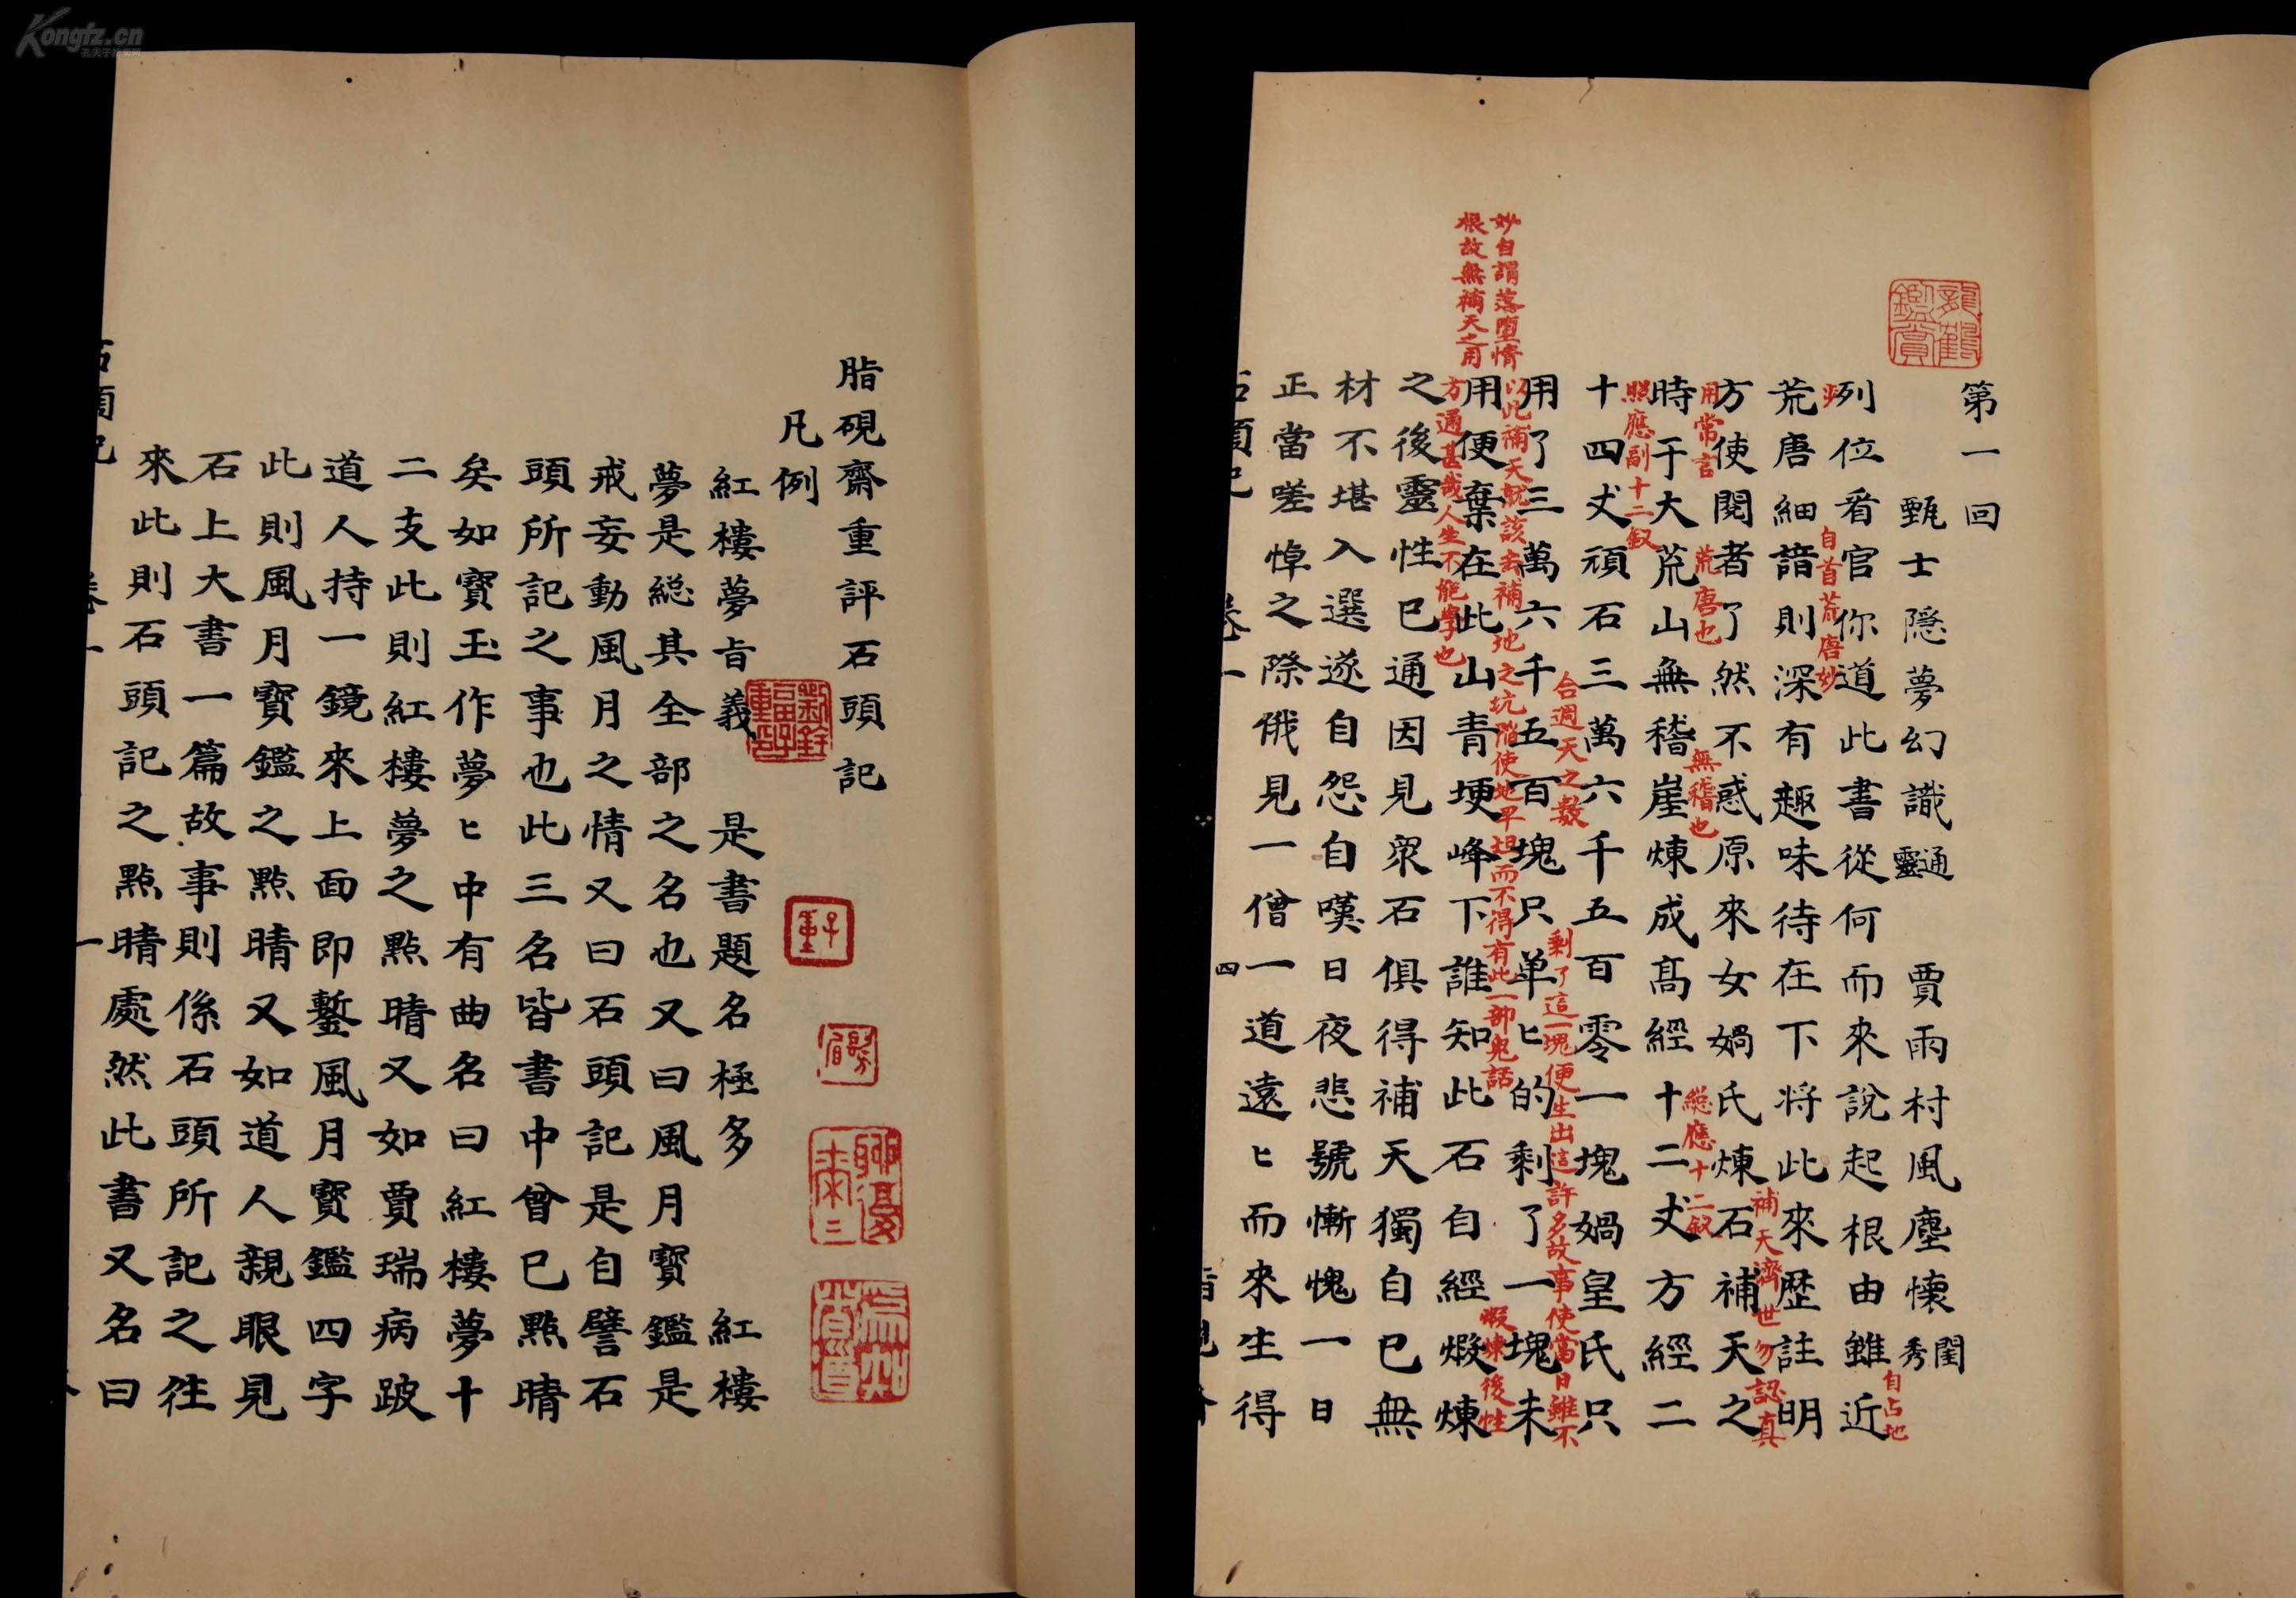 Kongfz.cn
脂硯齋重評石頭記
凡例
紅樓夢旨義 是書題名極多 紅樓
夢是総其全部之名也又曰風月寶鑑是
戒妄動風月之情又曰石頭記是自譬石
頭所記之事也此三名皆書中曾已點晴
矣如寳玉作夢ヒ中有曲名曰紅樓夢十
二支此則紅樓夢之點晴又如賈瑞病跛
道人持一鏡來上面即鏨風月寳鑑四字
此則風月寳鑑之點晴又如道人親眼見
石上大書一篇故事則係石頭所記之徃
來此則石頭記之點晴處然此書又名曰
石頭記 卷一 一
第一回
甄士隱夢幻識通靈 賈雨村風塵懷閨秀
列位看官你道此書從何而來說起根由雖近
自占地
妙
自首荒唐妙
荒唐細諳則深有趣味待在下將此來歷註明
補天濟世勿認真
方使閱者了然不惑原來女媧氏煉石補天之
用常言
荒唐也
無稽也
総應十二釵
時于大荒山無稽崖煉成髙經十二丈方經二
照應副十二釵
十四丈頑石三萬六千五百零一塊媧皇氏只
合週天之數
剩了這一塊便生出這許多故事使當日雖不
用了三萬六千五百塊只单ヒ的剩了一塊未
以此補天就該去補地之坑陷使地平坦而不得有此一部鬼話
煅煉後性
用便棄在此山青埂峰下誰知此石自經煆煉
妙自謂落墮情
根故無補天之用
方通甚哉人生不能學也
之後靈性已通因見衆石俱得補天獨自已無
材不堪入選遂自怨自嘆日夜悲號慚愧一日
正當嗟悼之際俄見一僧一道遠ヒ而來生得
石頭記 卷一 四